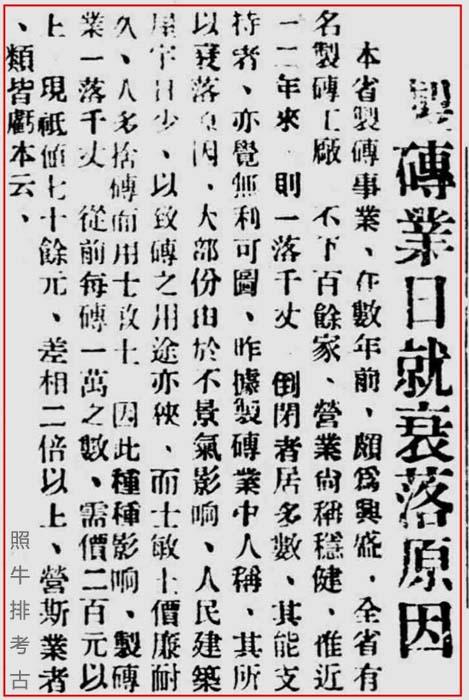 製磚業日就衰落原因
本省製磚事業、在數年前、頗爲興盛、全省有
名製磚工廠　不下百餘家、營業尙稱穩健、惟近
一二年來　則一落千丈　倒閉者居多數、其能支
持者、亦覺無利可圖、昨據製磚業中人稱、其所
以衰落原因、大部份由於不景氣影响、人民建築
屋宇日少、以致磚之用途亦狹、而士敏土價廉耐
久、人多捨磚而用士敏土　因此種種影响、製磚
業一落千丈　從前每磚一萬之數、需價二百元以
上　現祇値七十餘元、差相二倍以上、營斯業者
、類皆虧本云、
照牛排考古